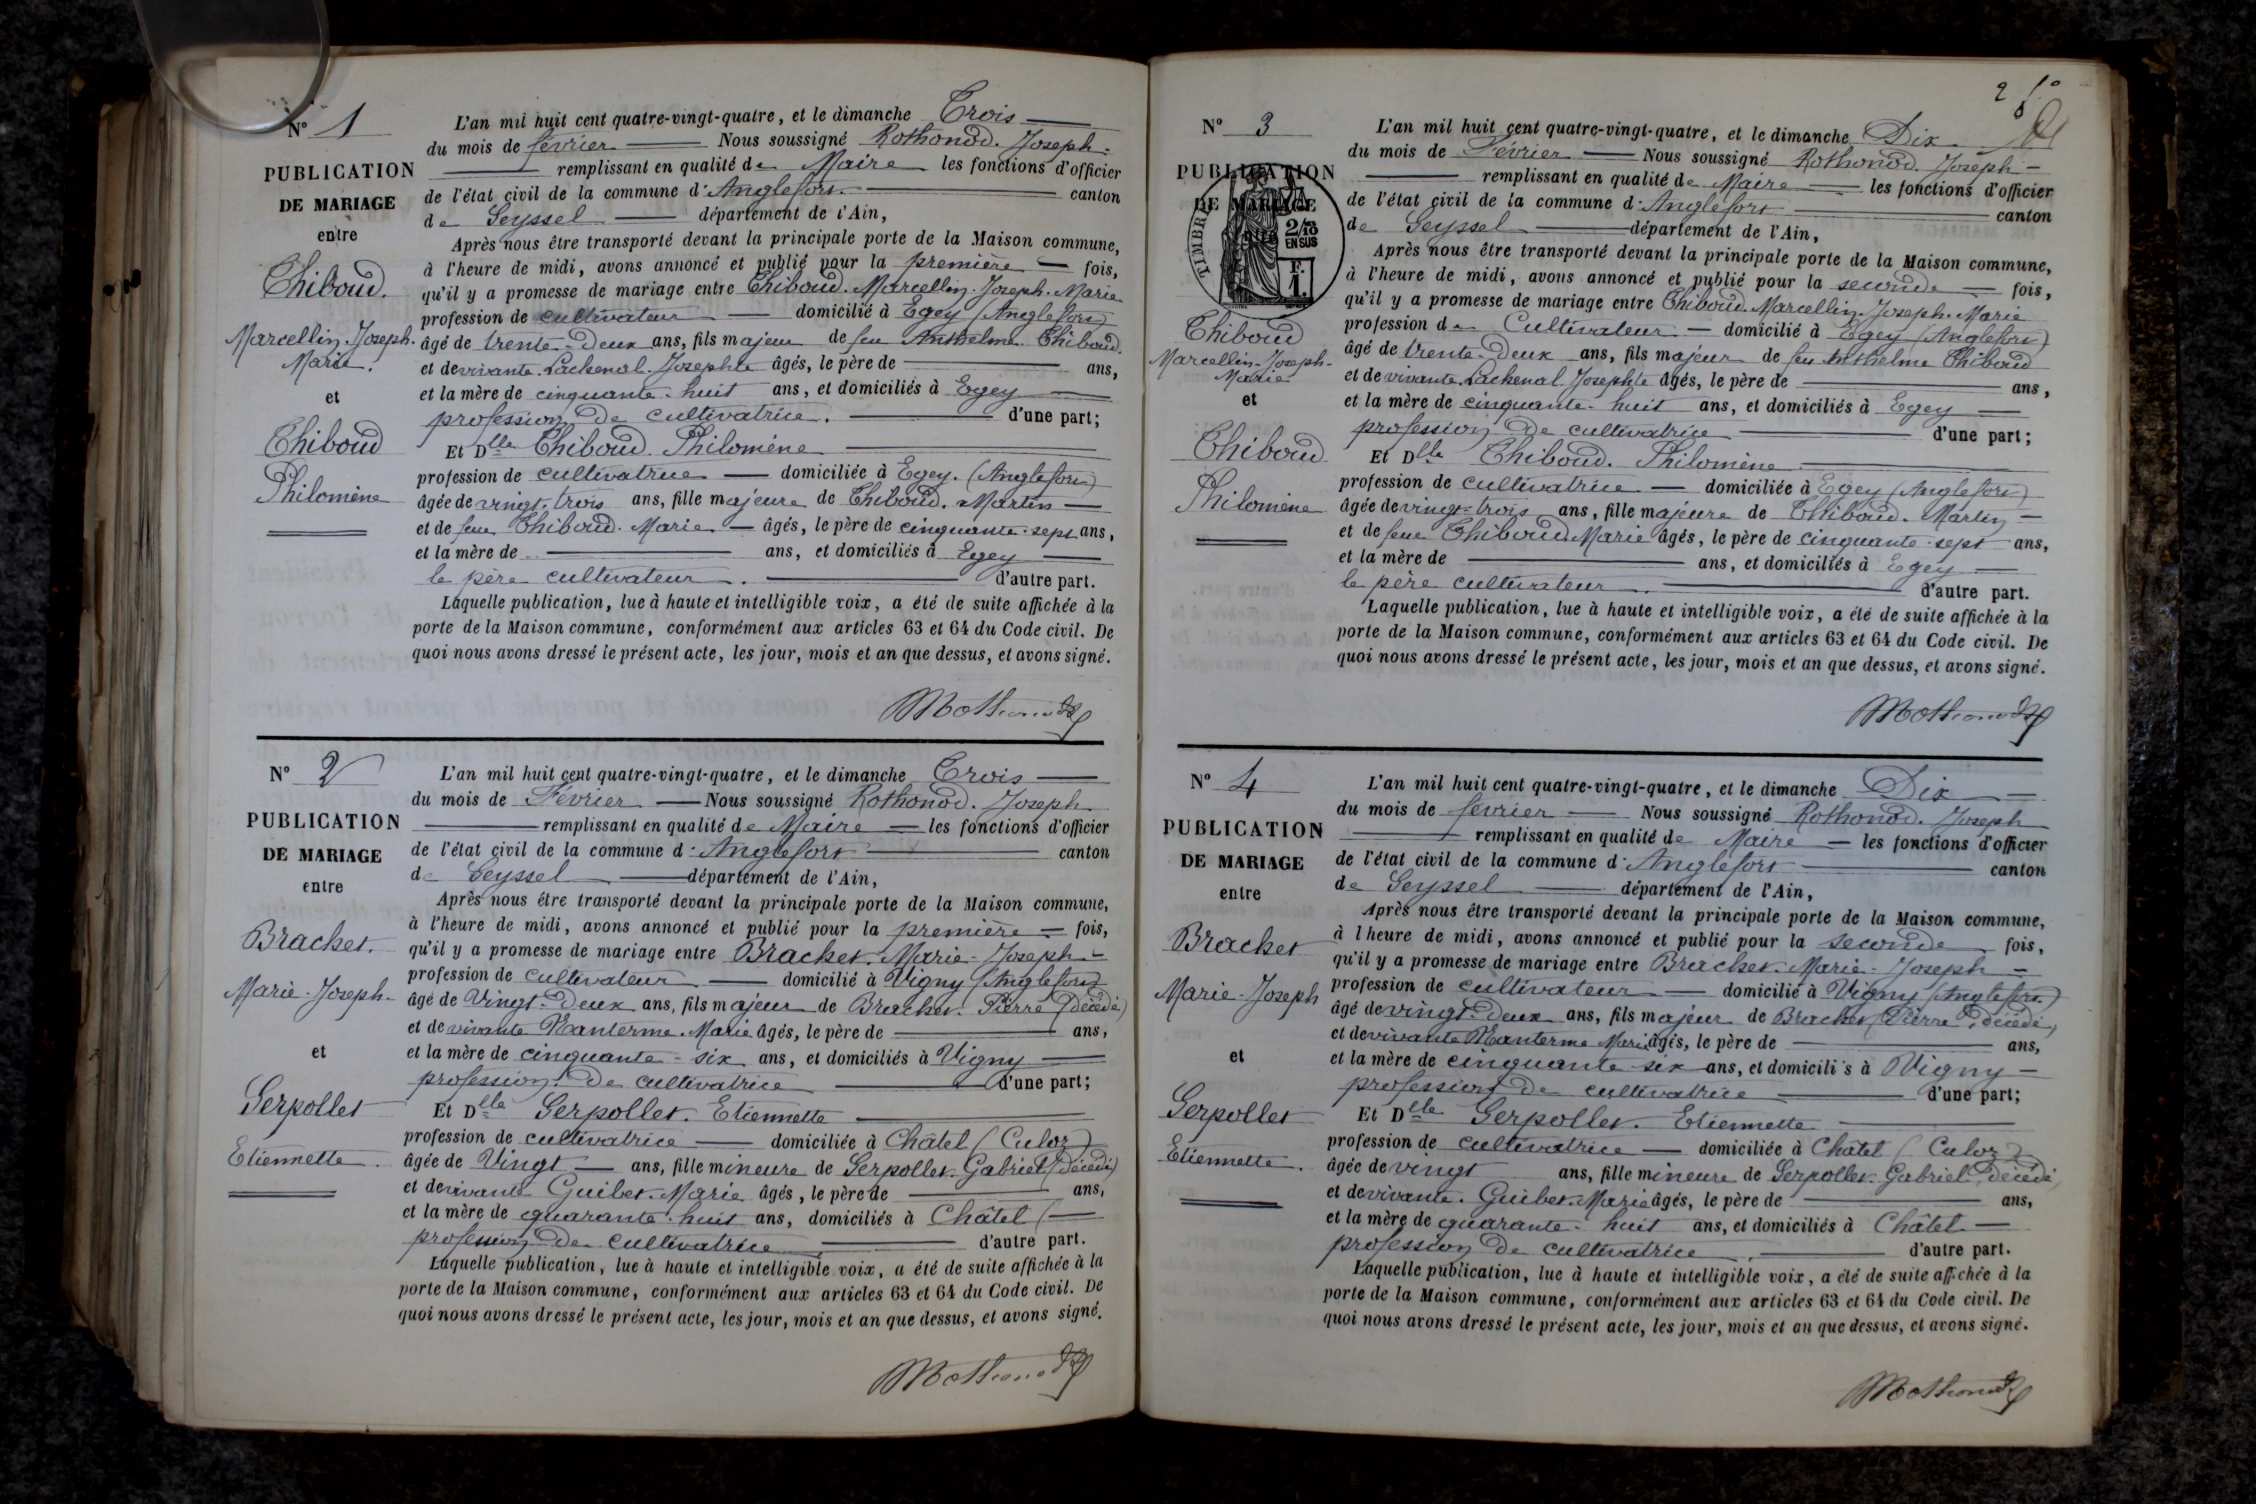 N° 1
PUBLICATION
DE MARIAGE
entre
Thiboud.
Marcellin. Joseph.
Marie.
et
Thiboud
Philomène
L'an mil huit cent quatre-vingt-quatre, et le dimanche Trois
du mois de février Nous soussigné Rothonod. Joseph.
remplissant en qualité de Maire les fonctions d'officier
de l'état civil de la commune d'Anglefort canton
de Seyssel département de l'Ain,
Après nous être transporté devant la principale porte de la Maison commune,
à l'heure de midi, avons annoncé et publié pour la première fois,
qu'il y a promesse de mariage entre Thiboud. Marcellin. Joseph. Marie
profession de cultivateur domicilié à Egey (Anglefort)
âgé de trente-deux ans, fils majeur de feu Anthelme Thiboud
et de vivante Lachenal Josephte âgés, le père de ans,
et la mère de cinquante-huit ans, et domiciliés à Egey
profession de cultivatrice. d'une part;
Et Dlle Thiboud Philomène
profession de cultivatrice domiciliée à Egey. (Anglefort)
âgée de vingt-trois ans, fille majeure de Thiboud. Martin
et de feue Thiboud. Marie âgés, le père de cinquante-sept ans,
et la mère de ans, et domiciliés à Egey
le père cultivateur. d'autre part.
Laquelle publication, lue à haute et intelligible voix, a été de suite affichée à la
porte de la Maison commune, conformément aux articles 63 et 64 du Code civil. De
quoi nous avons dressé le présent acte, les jour, mois et an que dessus, et avons signé.
N° 2
PUBLICATION
DE MARIAGE
entre
Brachet.
Marie-Joseph-
et
Serpollet
Etiennette.
L'an mil huit cent quatre-vingt-quatre, et le dimanche Trois
du mois de Février Nous soussigné Rothonod. Joseph
remplissant en qualité de Maire les fonctions d'officier
de l'état civil de la commune d'Anglefort canton
de Seyssel département de l'Ain,
Après nous être transporté devant la principale porte de la Maison commune,
à l'heure de midi, avons annoncé et publié pour la première fois,
qu'il y a promesse de mariage entre Brachet. Marie-Joseph
profession de cultivateur domicilié à Vigny (Anglefort)
âgé de Vingt-deux ans, fils majeur de Brachet. Pierre (décédé)
et de vivante Manterme. Marie âgés, le père de ans,
et la mère de cinquante-six ans, et domiciliés à Vigny
profession. de cultivatrice d'une part;
Et Dlle Serpollet. Etiennette
profession de cultivatrice domiciliée à Châtel (Culoz)
âgée de Vingt ans, fille mineure de Serpollet. Gabriel (décédé)
et de vivante Guibet. Marie âgés, le père de ans,
et la mère de quarante-huit ans, domiciliés à Châtel (
profession de cultivatrice d'autre part.
Laquelle publication, lue à haute et intelligible voix, a été de suite affichée à la
porte de la Maison commune, conformément aux articles 63 et 64 du Code civil. De
quoi nous avons dressé le présent acte, les jour, mois et an que dessus, et avons signé.
N° 3
PUBLICATION
DE MARIAGE
TIMBRE
2/10
EN SUS
F.
1.
Thiboud
Marcellin-Joseph-
Marie
et
Thiboud
Philomène
L'an mil huit cent quatre-vingt-quatre, et le dimanche Dix
du mois de Février Nous soussigné Rothonod. Joseph
remplissant en qualité de Maire les fonctions d'officier
de l'état civil de la commune d'Anglefort canton
de Seyssel département de l'Ain,
Après nous être transporté devant la principale porte de la Maison commune,
à l'heure de midi, avons annoncé et publié pour la seconde fois,
qu'il y a promesse de mariage entre Thiboud. Marcellin. Joseph. Marie
profession de Cultivateur domicilié à Egey (Anglefort)
âgé de trente-deux ans, fils majeur de feu Anthelme Thiboud
et de vivante Lachenal Josephte âgés, le père de ans,
et la mère de cinquante-huit ans, et domiciliés à Egey
profession de cultivatrice d'une part;
Et Dlle Thiboud. Philomène
profession de cultivatrice domiciliée à Egey (Anglefort)
âgée de vingt-trois ans, fille majeure de Thiboud. Martin
et de feue Thiboud Marie âgés, le père de cinquante-sept ans,
et la mère de ans, et domiciliés à Egey
le père cultivateur. d'autre part.
Laquelle publication, lue à haute et intelligible voix, a été de suite affichée à la
porte de la Maison commune, conformément aux articles 63 et 64 du Code civil. De
quoi nous avons dressé le présent acte, les jour, mois et an que dessus, et avons signé.
N° 4
PUBLICATION
DE MARIAGE
entre
Brachet
Marie-Joseph
et
Serpollet
Etiennette.
L'an mil huit cent quatre-vingt-quatre, et le dimanche Dix
du mois de février Nous soussigné Rothonod. Joseph
remplissant en qualité de Maire les fonctions d'officier
de l'état civil de la commune d'Anglefort canton
de Seyssel département de l'Ain,
Après nous être transporté devant la principale porte de la Maison commune,
à l'heure de midi, avons annoncé et publié pour la seconde fois,
qu'il y a promesse de mariage entre Brachet. Marie-Joseph
profession de cultivateur domicilié à Vigny (Anglefort)
âgé de vingt-deux ans, fils majeur de Brachet (Pierre, décédé,
et de vivante Manterme Marie âgés, le père de ans,
et la mère de cinquante-six ans, et domiciliés à Vigny
profession de cultivatrice d'une part;
Et Dlle Serpollet. Etiennette
profession de cultivatrice domiciliée à Châtel (Culoz)
âgée de vingt ans, fille mineure de Serpollet. Gabriel, décédé
et de vivante. Guibet. Marie âgés, le père de ans,
et la mère de quarante-huit ans, et domiciliés à Châtel
profession de cultivatrice. d'autre part.
Laquelle publication, lue à haute et intelligible voix, a été de suite affichée à la
porte de la Maison commune, conformément aux articles 63 et 64 du Code civil. De
quoi nous avons dressé le présent acte, les jour, mois et an que dessus, et avons signé.